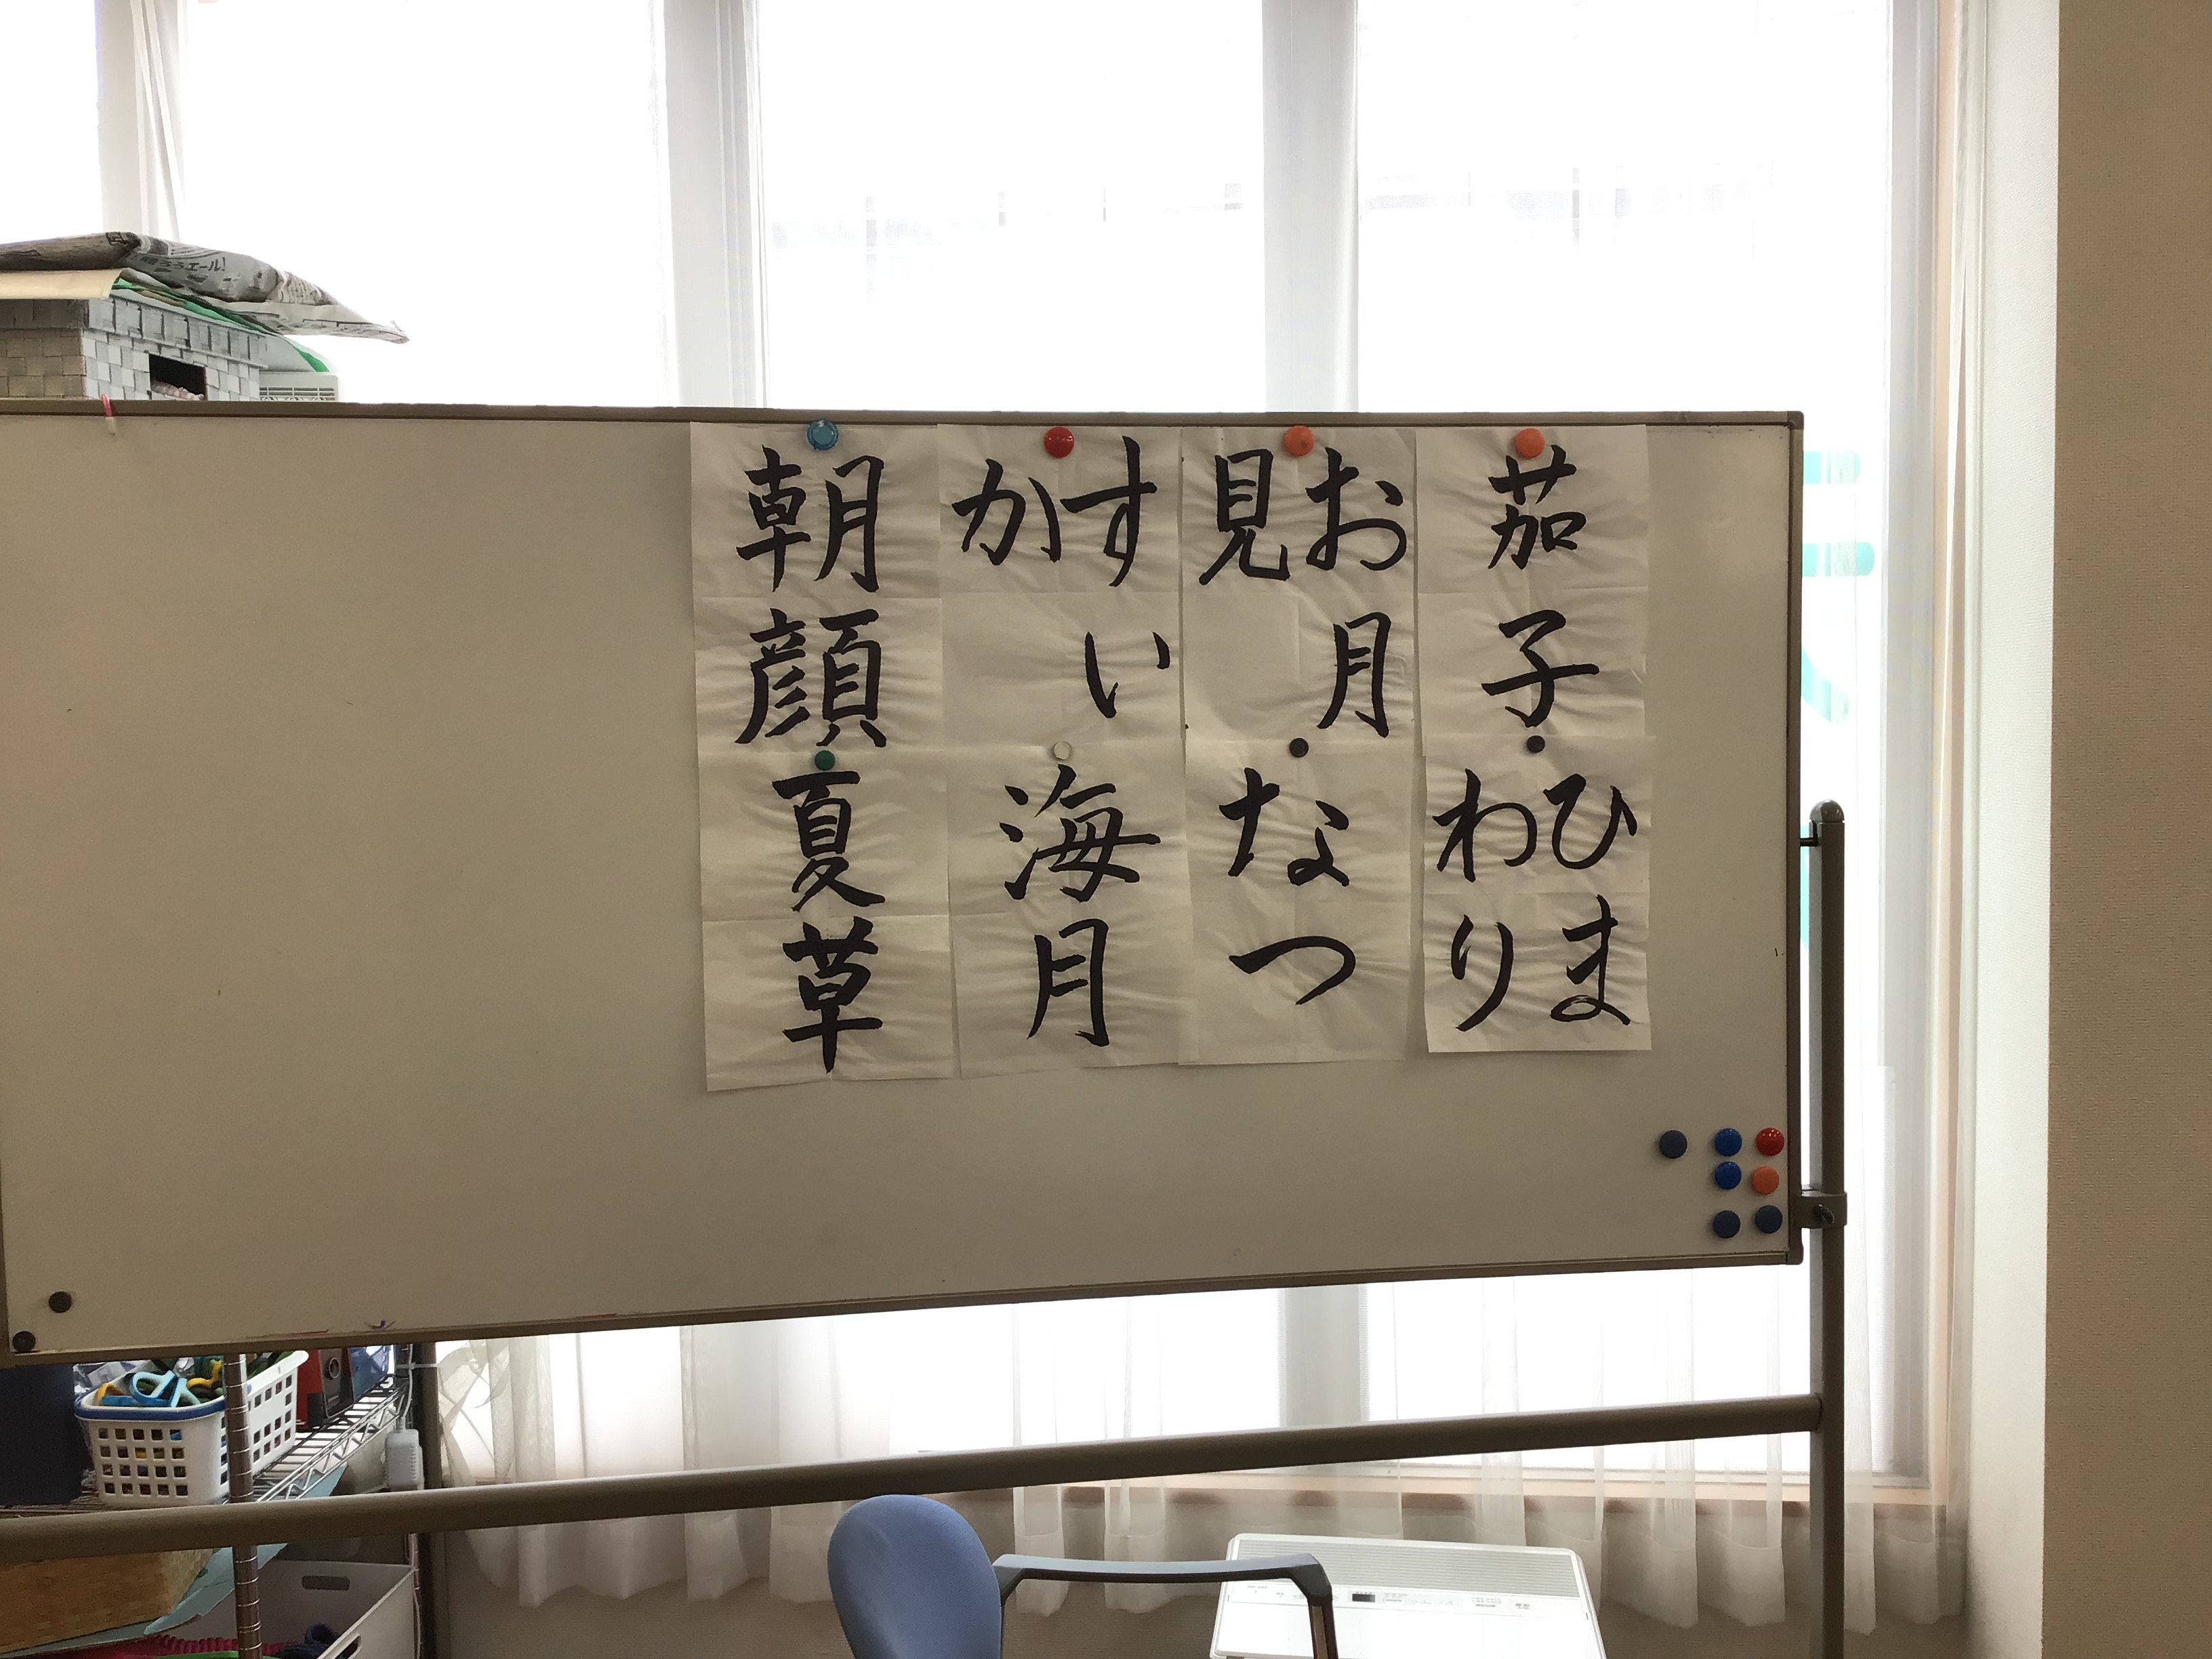 茄子
お月見
すいか
朝顔
ひまわり
なつ
海月
夏草
エール!